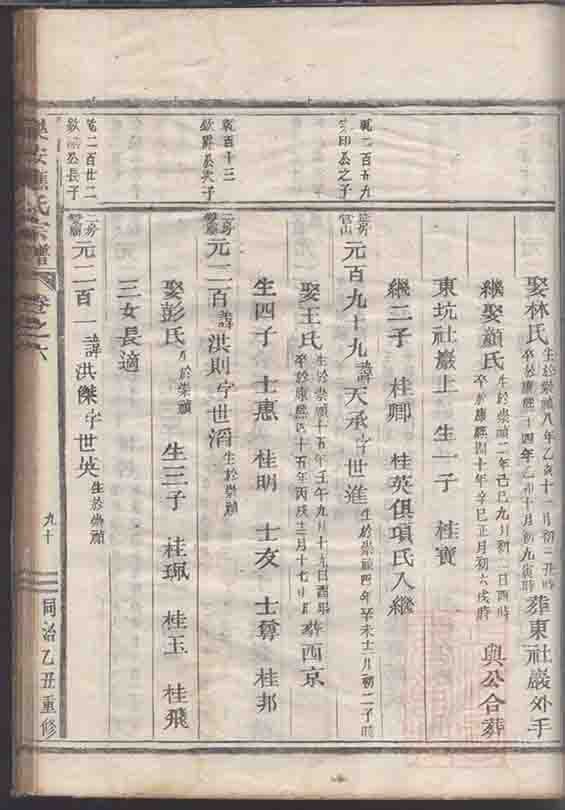 娶林氏生於崇禎八年乙亥十一月初三丑時卒於康熙十四年乙卯十月初九寅時葬東社巖外手
繼娶顏氏生於崇禎二年己巳九月初二日酉時卒於康熙四十年辛巳正月初六戌時與公合葬
東坑社巖上生一子桂寶
繼二子桂卿桂英俱項氏入繼
乾一百五九
印公之子
元百九十九諱天承字世進生於崇禎四年辛未十二月初二子時
娶王氏生於崇禎十五年壬午九月十九日酉時卒於康熙四十五年丙戌十二月十七日 葬西京
生四子士惠桂明士友士尊桂邦
乾百十三
欽昇公次子
二房
元二百諱洪則字世滔生於崇禎
娶彭氏生於崇禎生三子桂珮桂玉桂飛
三女長適
乾二百廿二
欽 公長子
二房
元二百一諱洪傑字世英生於崇禎
樂安 氏宗譜
卷之六
九十
同治乙丑重修